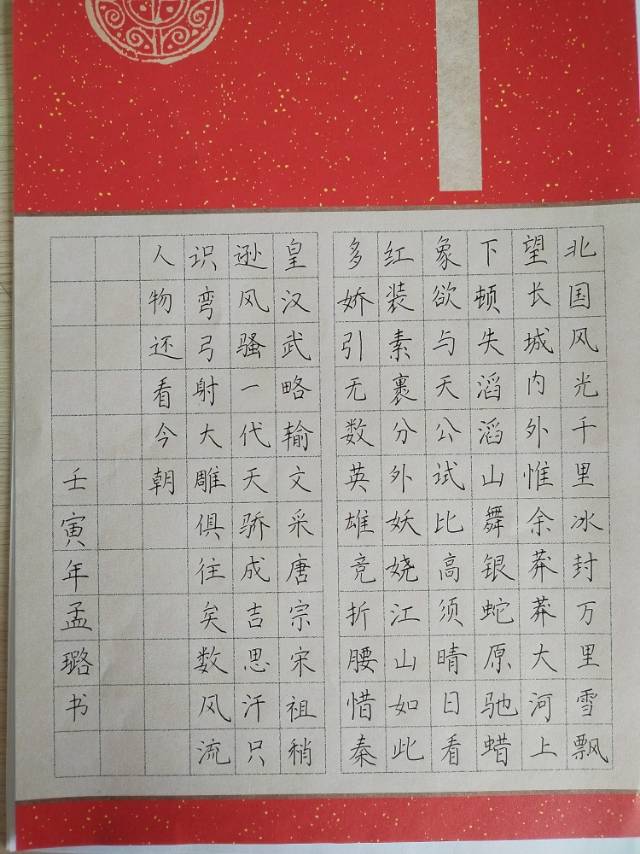 北国风光千里冰封万里雪飘
望长城内外惟余莽莽大河上
下顿失滔滔山舞银蛇原驰蜡
象欲与天公试比高须晴日看
红装素裹分外妖娆江山如此
多娇引无数英雄竞折腰惜秦
皇汉武略输文采唐宗宋祖稍
逊风骚一代天骄成吉思汗只
识弯弓射大雕俱往矣数风流
人物还看今朝
壬寅年孟璐书